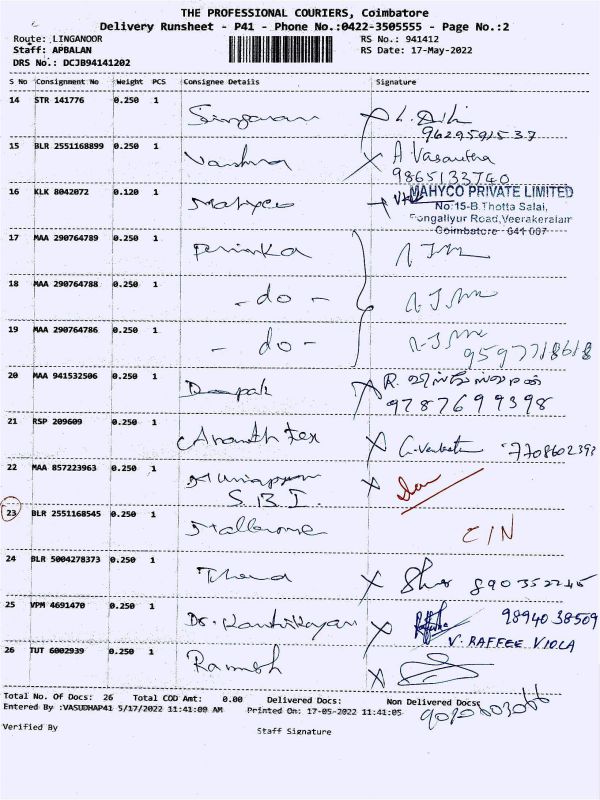 THE PROFESSIONAL COURIERS, Coimbatore
Delivery Runsheet - P41 - Phone No.:0422-3505555 - Page No.:2
Route: LINGANOOR RS No.: 941412
Staff: APBALAN RS Date: 17-May-2022
DRS No.: DCJB94141202
S No Consignment No Weight PCS Consignee Details Signature
14 STR 141776 0.250 1
9629591537
15 BLR 2551168899 0.250 1 A Vasantha
9865133740
16 KLK 8042072 0.120 1 Mahyco MAHYCO PRIVATE LIMITED
No:15-B.Thotta Salai,
Pongaliyur Road,Veerakeralam
Coimbatore - 641 007
17 MAA 290764789 0.250 1
18 MAA 290764788 0.250 1 - do -
19 MAA 290764786 0.250 1 - do -
9597718618
20 MAA 941532506 0.250 1 Deepak R.
9787699398
21 RSP 209609 0.250 1 Ananth Tex
22 MAA 857223963 0.250 1
S.B.I.
23 BLR 2551168545 0.250 1 C/N
24 BLR 5004278373 0.250 1
25 VPM 4691470 0.250 1 Dr. Karthikeyan 9894038509
V. RAFFEE VIOLA
26 TUT 6002939 0.250 1 Ramesh
Total No. Of Docs: 26 Total COD Amt: 0.00 Delivered Docs: Non Delivered Docs:
Entered By :VASUDHAP41 5/17/2022 11:41:00 AM Printed On: 17-05-2022 11:41:05
Verified By Staff Signature